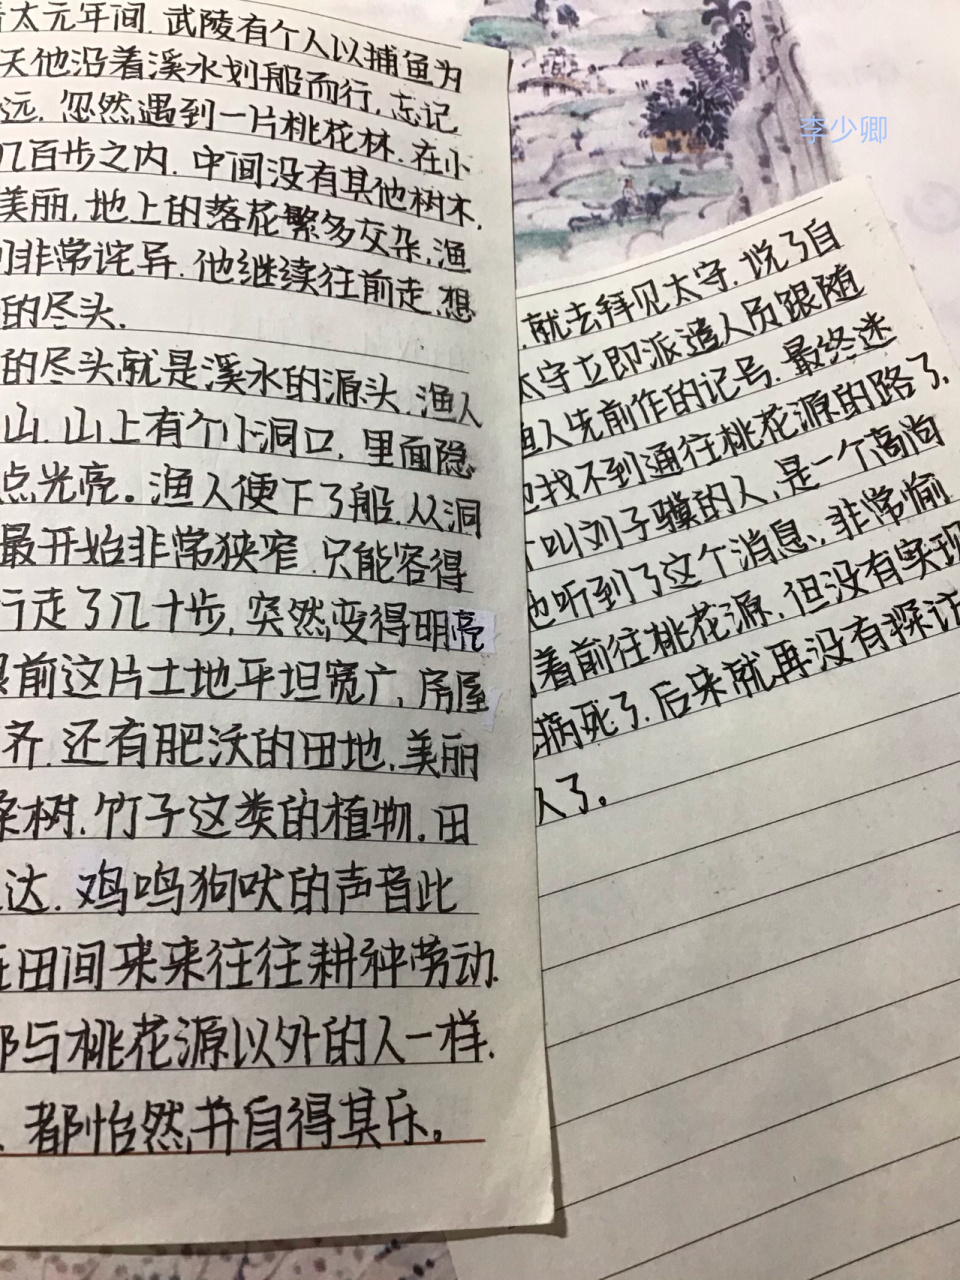 太元年间.武陵有个人以捕鱼为
天他沿着溪水划船而行.忘记
远.忽然遇到一片桃花林.在小
几百步之内.中间没有其他树木.
美丽,地上的落花繁多交杂.渔
非常诧异.他继续往前走.想
的尽头.
的尽头就是溪水的源头.渔人
山.山上有个小洞口.里面隐
点光亮。渔人便下了船.从洞
最开始非常狭窄.只能容得
行走了几十步,突然变得明亮
前这片土地平坦宽广,房屋
齐.还有肥沃的田地.美丽
桑树.竹子这类的植物.田
达.鸡鸣狗吠的声音此
在田间来来往往耕种劳动.
都与桃花源以外的人一样.
都怡然并自得其乐。
李少卿
.就去拜见太守.说了自
太守立即派遣人员跟随
渔人先前作的记号.最终迷
也找不到通往桃花源的路了.
个叫刘子骥的人,是一个高尚
他听到了这个消息,非常愉
着前往桃花源.但没有实现
病死了.后来就再没有探访
人了。